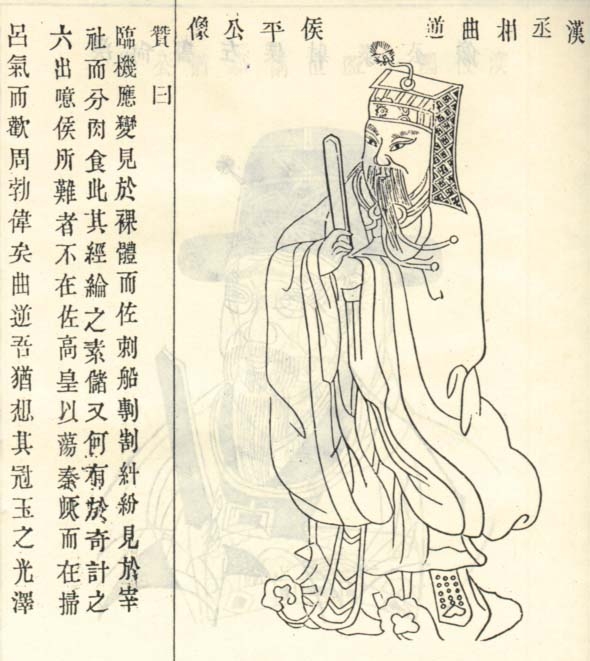 漢丞相曲逆侯平公像
贊曰
臨機應變見於裸體而佐刺船剸割糾紛見於宰
社而分肉食此其經綸之素儲又何有於奇計之
六出噫侯所難者不在佐高皇以蕩秦蹶而在掃
呂氣而歡周勃偉矣曲逆吾猶想其冠玉之光澤